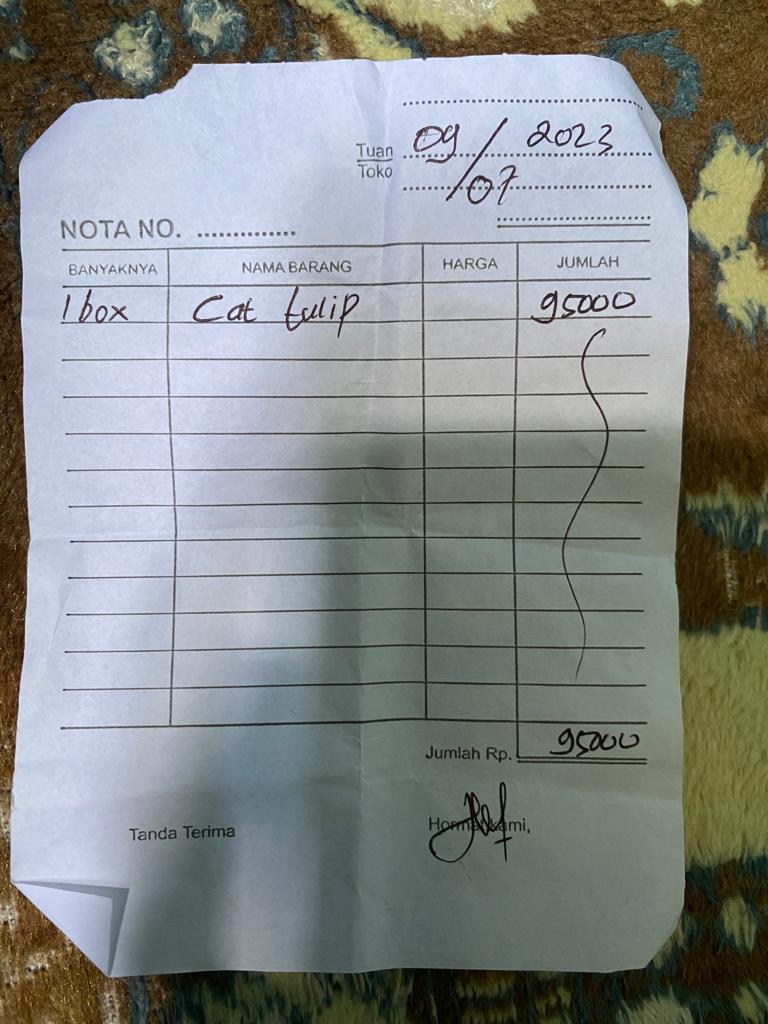 Tuan 09 / 2023
Toko /07
NOTA NO. ...............
BANYAKNYA NAMA BARANG HARGA JUMLAH
1 box Cat tulip 95000
Jumlah Rp. 95000
Tanda Terima Hormat kami,